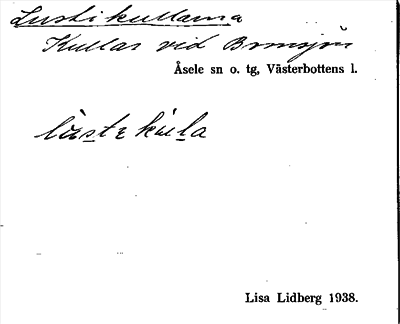 Lustikullarna
Kullar vid Bromsjön
Åsele sn o. tg, Västerbottens l.
Lisa Lidberg 1938.